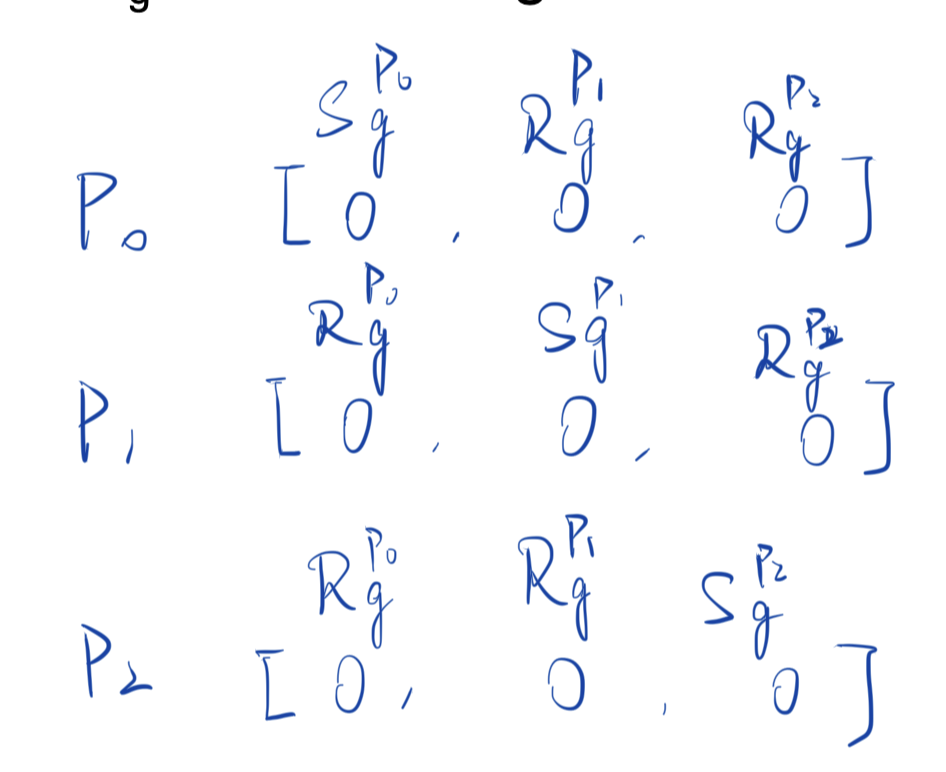 S g P0 R g P1 R g P2
P0 [ 0 , 0 , 0 ]
R g P0 S g P1 R g P2
P1 [ 0 , 0 , 0 ]
R g P0 R g P1 S g P2
P2 [ 0 , 0 , 0 ]